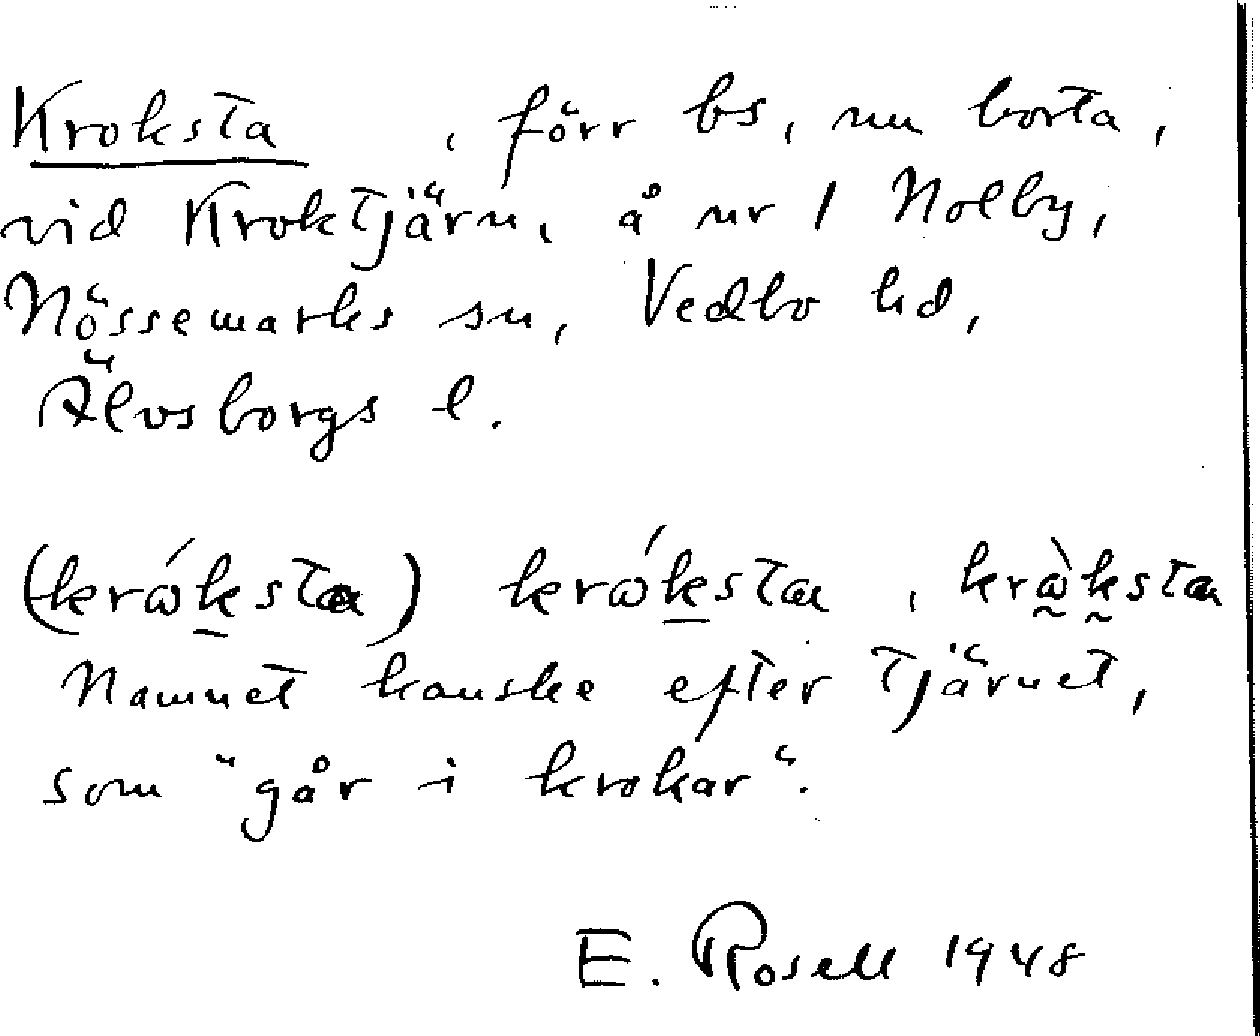 Kroksta , förr bs, nu borta,
vid Kroktjärn, å nr 1 Nolby,
Nössemarks sn, Vedbo hd,
Älvsborgs l.
(krώk̲sta) krώk̲sta, krὼ̰k̰sta
Namnet kanske efter tjärnet,
som "går i krokar".
E. Rosell 1948